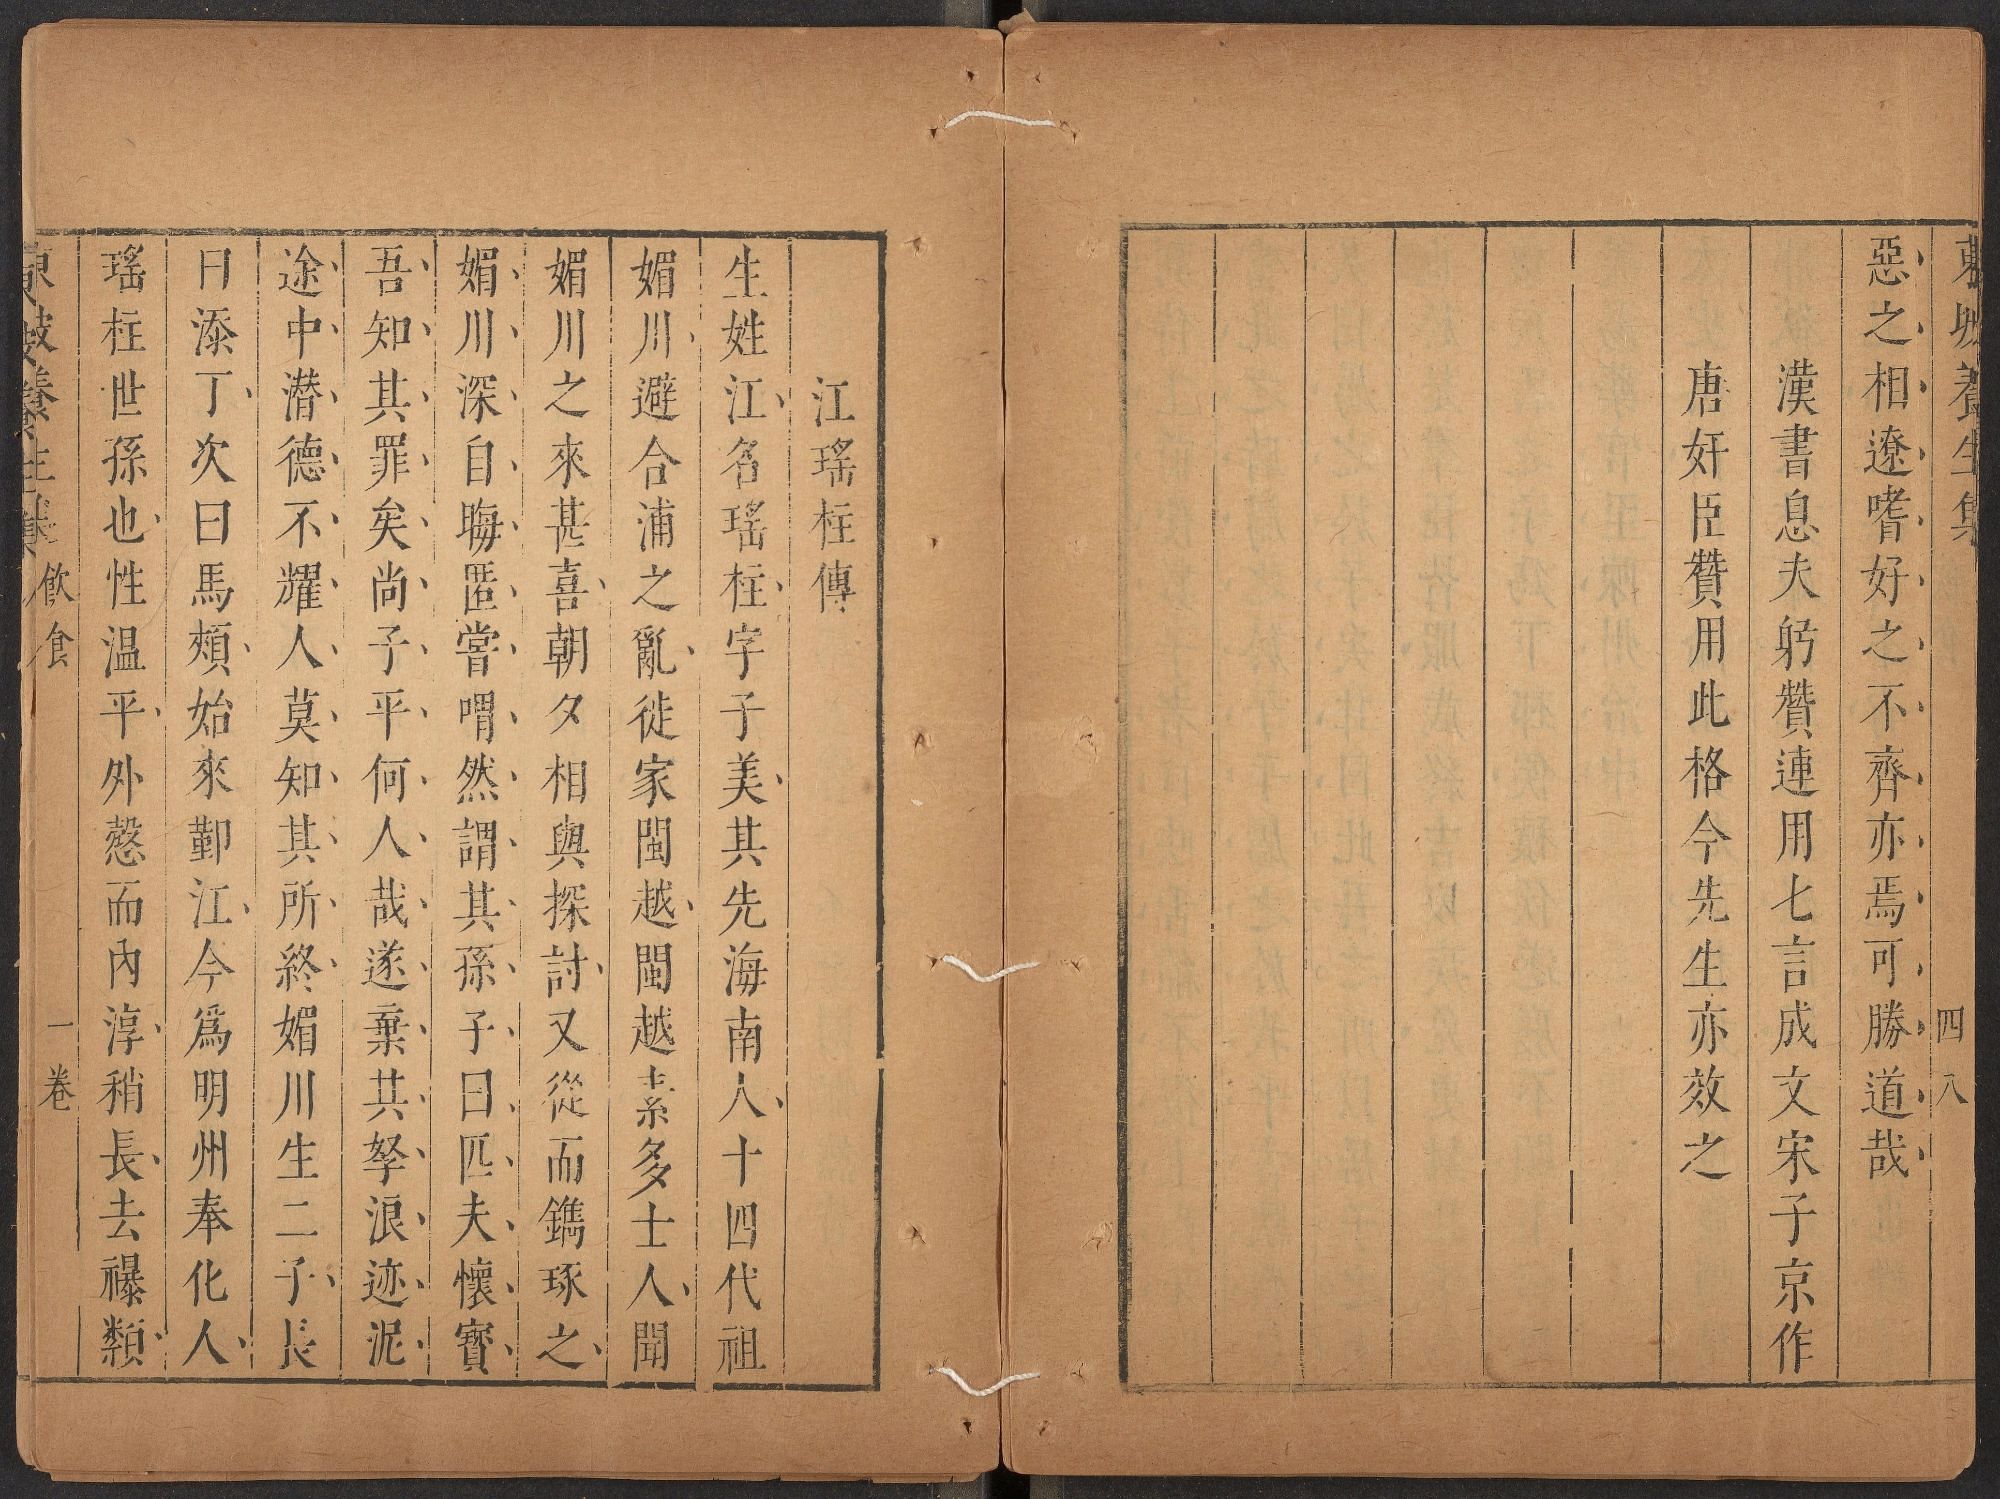 東坡養生集
四八
惡之相遼嗜好之不齊亦焉可勝道哉
漢書息夫躬贊連用七言成文宋子京作
唐奸臣贊用此格今先生亦效之
江瑤柱傳
生姓江名瑤柱字子美其先海南人十四代祖
媚川避合浦之亂徙家閩越閩越素多士人聞
媚川之來甚喜朝夕相與探討又從而鐫琢之
媚川深自晦匿嘗喟然謂其孫子曰匹夫懷寶
吾知其罪矣尚子平何人哉遂棄其孥浪迹泥
途中潜德不耀人莫知其所終媚川生二子長
曰添丁次曰馬頰始來鄞江今爲明州奉化人
瑤柱世孫也性温平外慤而內淳稍長去襮纇
東坡養生集 飲食
一卷